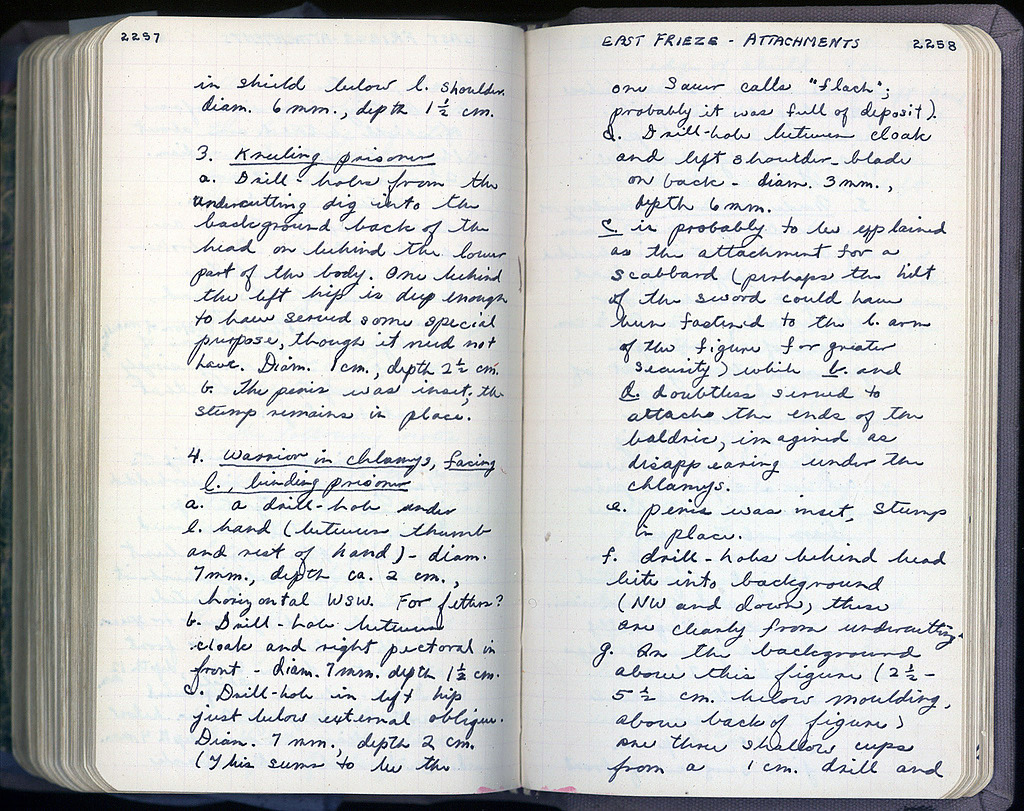 2257
in shield below l. shoulder.
diam. 6 mm., depth 1 ½ cm.
3. Kneeling prisoner
a. Drill-holes from the
undercutting dig into the
background back of the
head on behind the lower
part of the body. One behind
the left hip is deep enough
to have served some special
purpose, though it need not
have. Diam. 1 cm., depth 2 ½ cm.
b. The penis was inset; the
stump remains in place.
4. Warrior in chlamys, facing
l., binding prisoner
a. a drill-hole under
l. hand (between thumb
and rest of hand) - diam.
7 mm., depth ca. 2 cm.,
horizontal WSW. For fetters?
b. Drill-hole between
cloak and right pectoral in
front - diam. 7 mm. depth 1 ½ cm.
c. Drill-hole in left hip
just below external oblique.
Diam. 7 mm., depth 2 cm.
(This seems to be the
EAST FRIEZE - ATTACHMENTS 2258
one Sauer calls "flach";
probably it was full of deposit).
d. Drill-hole between cloak
and left shoulder-blade
on back - diam. 3 mm.,
depth 6 mm.
c. is probably to be explained
as the attachment for a
scabbard (perhaps the hilt
of the sword could have
been fastened to the l. arm
of the figure for greater
security) while b. and
d. doubtless served to
attach the ends of the
baldric, imagined as
disappearing under the
chlamys.
e. penis was inset, stump
in place.
f. drill-holes behind head
bite into background
(NW and down, these
are clearly from undercutting.
g. In the background
above this figure (2 ½ -
5 ½ cm. below moulding,
above back of figure)
are three shallow cups
from a 1 cm. drill and